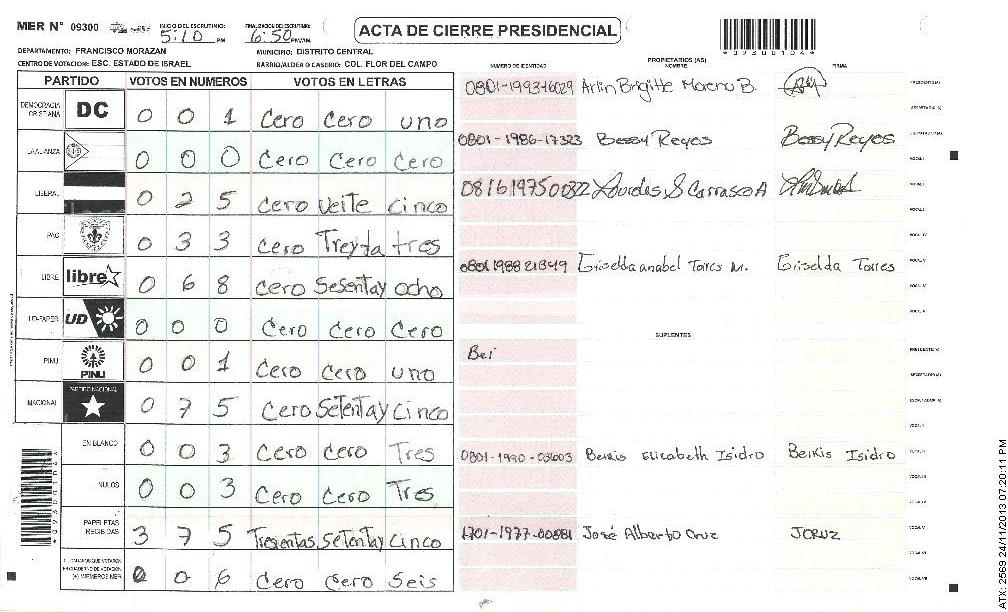 MER N° 09300 INICIO DEL ESCRUTINIO: 5:10 PM FINALIZACION DEL ESCRUTINIO: 6:50 PM/AM ACTA DE CIERRE PRESIDENCIAL
DEPARTAMENTO: FRANCISCO MORAZAN MUNICIPIO: DISTRITO CENTRAL
CENTRO DE VOTACION: ESC. ESTADO DE ISRAEL BARRIO/ALDEA O CASERIO: COL. FLOR DEL CAMPO
NUMERO DE IDENTIDAD PROPIETARIOS (AS) NOMBRE FIRMA
PARTIDO VOTOS EN NUMEROS VOTOS EN LETRAS
DEMOCRACIA CRISTIANA DC 0 0 1 Cero Cero uno
LA ALIANZA 0 0 0 Cero Cero Cero
LIBERAL 0 2 5 Cero Veite Cinco
PAC 0 3 3 Cero Treyta tres
LIBRE libre 0 6 8 Cero Sesentay ocho
UD-FAPER UD 0 0 0 Cero Cero Cero
PINU PINU 0 0 1 Cero Cero uno
NACIONAL PARTIDO NACIONAL 0 7 5 Cero Setentay Cinco
EN BLANCO 0 0 3 Cero Cero Tres
NULOS 0 0 3 Cero Cero Tres
PAPELETAS RECIBIDAS 3 7 5 Trecentas Setentay Cinco
(+) MIEMBROS MER 0 0 6 Cero Cero Seis
Arlin Brigitte Moreno B.
0801-1986-17323 Bessy Reyes Bessy Reyes
Lourdes S Carrasco A
0801 1988 21349 Griselda anabel Torres M. Griselda Torres
SUPLENTES
Bei
0801-1990-03603 Beikis Elizabeth Isidro Beikis Isidro
1701-1977-00881 José Alberto Cruz JCRUZ
ATX: 2569 24/11/2013 07:20:11 PM